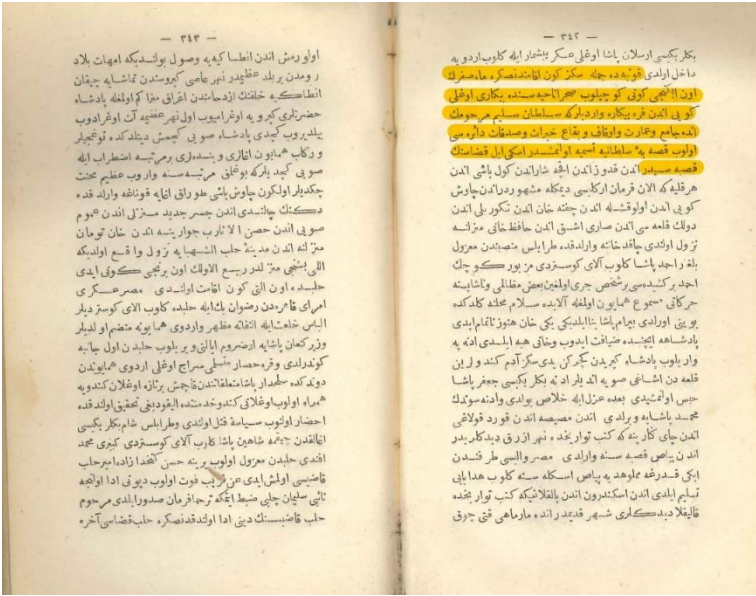 — ٣٤٢ —
بكلر بكیسی ارسلان پاشا اوغلی عسكر بیشمار ایله كلوب اردو یه
داخل اولدی قونیه ده جمله سكز كون اقامتدنصكره ماه صفرك
اون ایكنجی كونی كوچیلوب صحرا ناحیه سنده بكاری اوغلی
كویی اندن قره بیكاره واردیلركه سلطان سلیم مرحومك
انده جامع وعمارت واوقاف وبقاع خیرات وصدقات دائره سی
اولوب قصبه یه سلطانیه تسمیه اولنمشدر اسكی ایل قضاسنك
قصبه سیدر اندن قدوز اندن اقچه شاراندن كول باشی اندن
هرقلیه كه الان فرمان اركلیسی دیمكله مشهوردراندن چاوش
كویی اندن اولوقشله اندن چفته خان اندن تكور بلی اندن
دولك قلعه سی اندن صاری اشق اندن حافظ خانی منزلنه
نزول اولندی چاقد خاننه واردقده طرابلس منصبندن معزول
بلغار احمد پاشا كلوب آلای كوستردی مزبور كوچك
احمد بركشیده سی برشخص جری اولمغین بعض مظالمی وناشایسته
حركاتی مسموع همایون اولمغله آلایده سلام محلنه كلدكده
بوینی اورلدی بیرام پاشا بنا ایلدیكی یكی خان هنوز ناتمام ایدی
پادشاهه ایچنده ضیافت ایدوب وخانی هبه ایلدی ادنه یه
واریلوب پادشاه كپریدن كچركن یدی سكز آدم كندولرین
قلعه دن اشاغی صویه اندیلر ادنه بكلر بكیسی جعفر پاشا
حبس اولنمشیدی بعده عزل ایله خلاص بولدی وادنه سوندك
محمد پاشایه ویرلدی اندن مصیصه اندن قورد قولاغی
اندن جای كنارینه كه كتب تواریخده نهر ازرق دیدكلریدر
اندن بیاص قصبه سنه وارلدی مصر والیسی طرفندن
ایكی قدرغه مملو هدیه بیاص اسكله سنه كلوب هدایایی
تسلیم ایلدی اندن اسكندرون اندن بالقلاغیكه كتب تواریخده
قالیقلا دیدكلری شهر قدیمدر انده مارماهی قتی چوق
— ٣٤٣ —
اولورمش اندن انطاكیه یه وصول بولندیكه امهات بلاد
رومدن بربلد عظیمدر نهر عاصی كپروسندن تماشایه چیقان
انطاكیه خلقنك ازدحامندن اغراق متراكم اولمغله پادشاه
حضرتلری كپرویه اوغرامیوب اول نهر عظیمه آت اوغرادوب
ییلدیروب كچدی پادشاه صویی كچمش دینلدكده توغجیلر
وركاب همایون اغالری وبنده لری برمرتبه اضطراب ایله
صویی كچدیلركه بوغلمق مرتبه سنه واروب عظیم محنت
چكدیلر اولكون چاوش باشی طوراق اغایه قوناغه وارلدقده
دكنك چالندی اندن جسر جدید منزلی اندن عموم
صویی اندن حصن الاثارب جوارینه اندن خان تومان
منزلنه اندن مدینهٔ حلب الشهبایه نزول واقع اولدیكه
اللی بشنجی منزلدر ربیع الاولك اون برنجی كونی ایدی
حلبده اون التی كون اقامت اولندی مصر عسكری
امرای قاهره دن رضوان بك ایله حلبده كلوب الای كوستردیلر
الباس خلعت ایله التفاته مظهر واردوی همایونه منضم اولدیلر
وزیر كنعان پاشایه ارضروم ایالتی ویریلوب حلبدن اول جانبه
كوندرلدی وقره حصار متسلمی سراج اوغلی اردوی همایوندن
دوندكده سلحدار پاشا متعلقاتندن قاچمش برتازه اوغلان كندویه
همراه اولوب اوغلانی كندو خدمتنده الیقودیغی تحقیق اولندقده
احضار اولنوب سیاسة قتل اولندی وطرابلس شام بكلر بكیسی
اغالقدن چیقمه شاهین پاشا كلوب آلای كوستردی كبری محمد
افندی حلبدن معزول اولوب یرینه حسن كتخدا زاده امیر حلب
قاضیسی اولمش ایدی عن قریب فوت اولوب دیونی ادا اولنجه
نائبی سلیمان چلبی ضبط ایتمكه ترحما فرمان صدور ایلدی مرحوم
حلب قاضیسنك دینی ادا اولندقدنصكره حلب قضاسی آخره